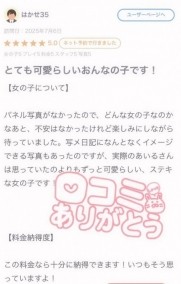 はかせ35
ユーザーページへ
訪問日：2025年7月6日
★★★★★5.0
ネット予約で行きました
とても可愛らしいおんなの子です！
【女の子について】
パネル写真がなかったので、どんな女の子なのか
なあと、不安はなかったけれど楽しみにしなが
ら待っていました。写メ日記になんとなくイメージ
できる写真もあったのですが、実際のあいるさん
は思っていたのよりもずっと可愛らしい、ステキ
な女の子です
口コミ
ありがとう
【料金納得度】
この料金なら十分に納得できます！いつもそう思
っていますよ！